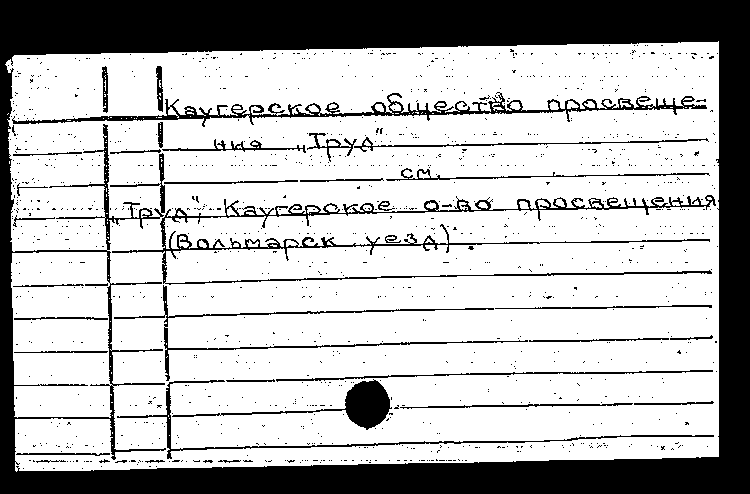 Каугерское общество просвеще-
ния „Труд"
см.
„Труд", Каугерское о-во просвещения
(Вольмарск. уезд).